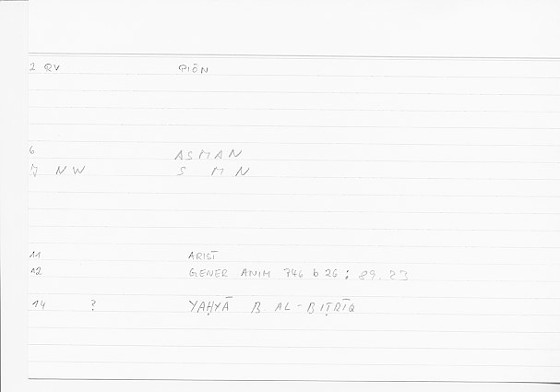 2 QV PIŌN
6 ASMAN
NW S M N
11 ARIST
12 GENER ANIM 746 b 26 : 89.23
14 ? YAḤYĀ B AL-BIṬRĪQ